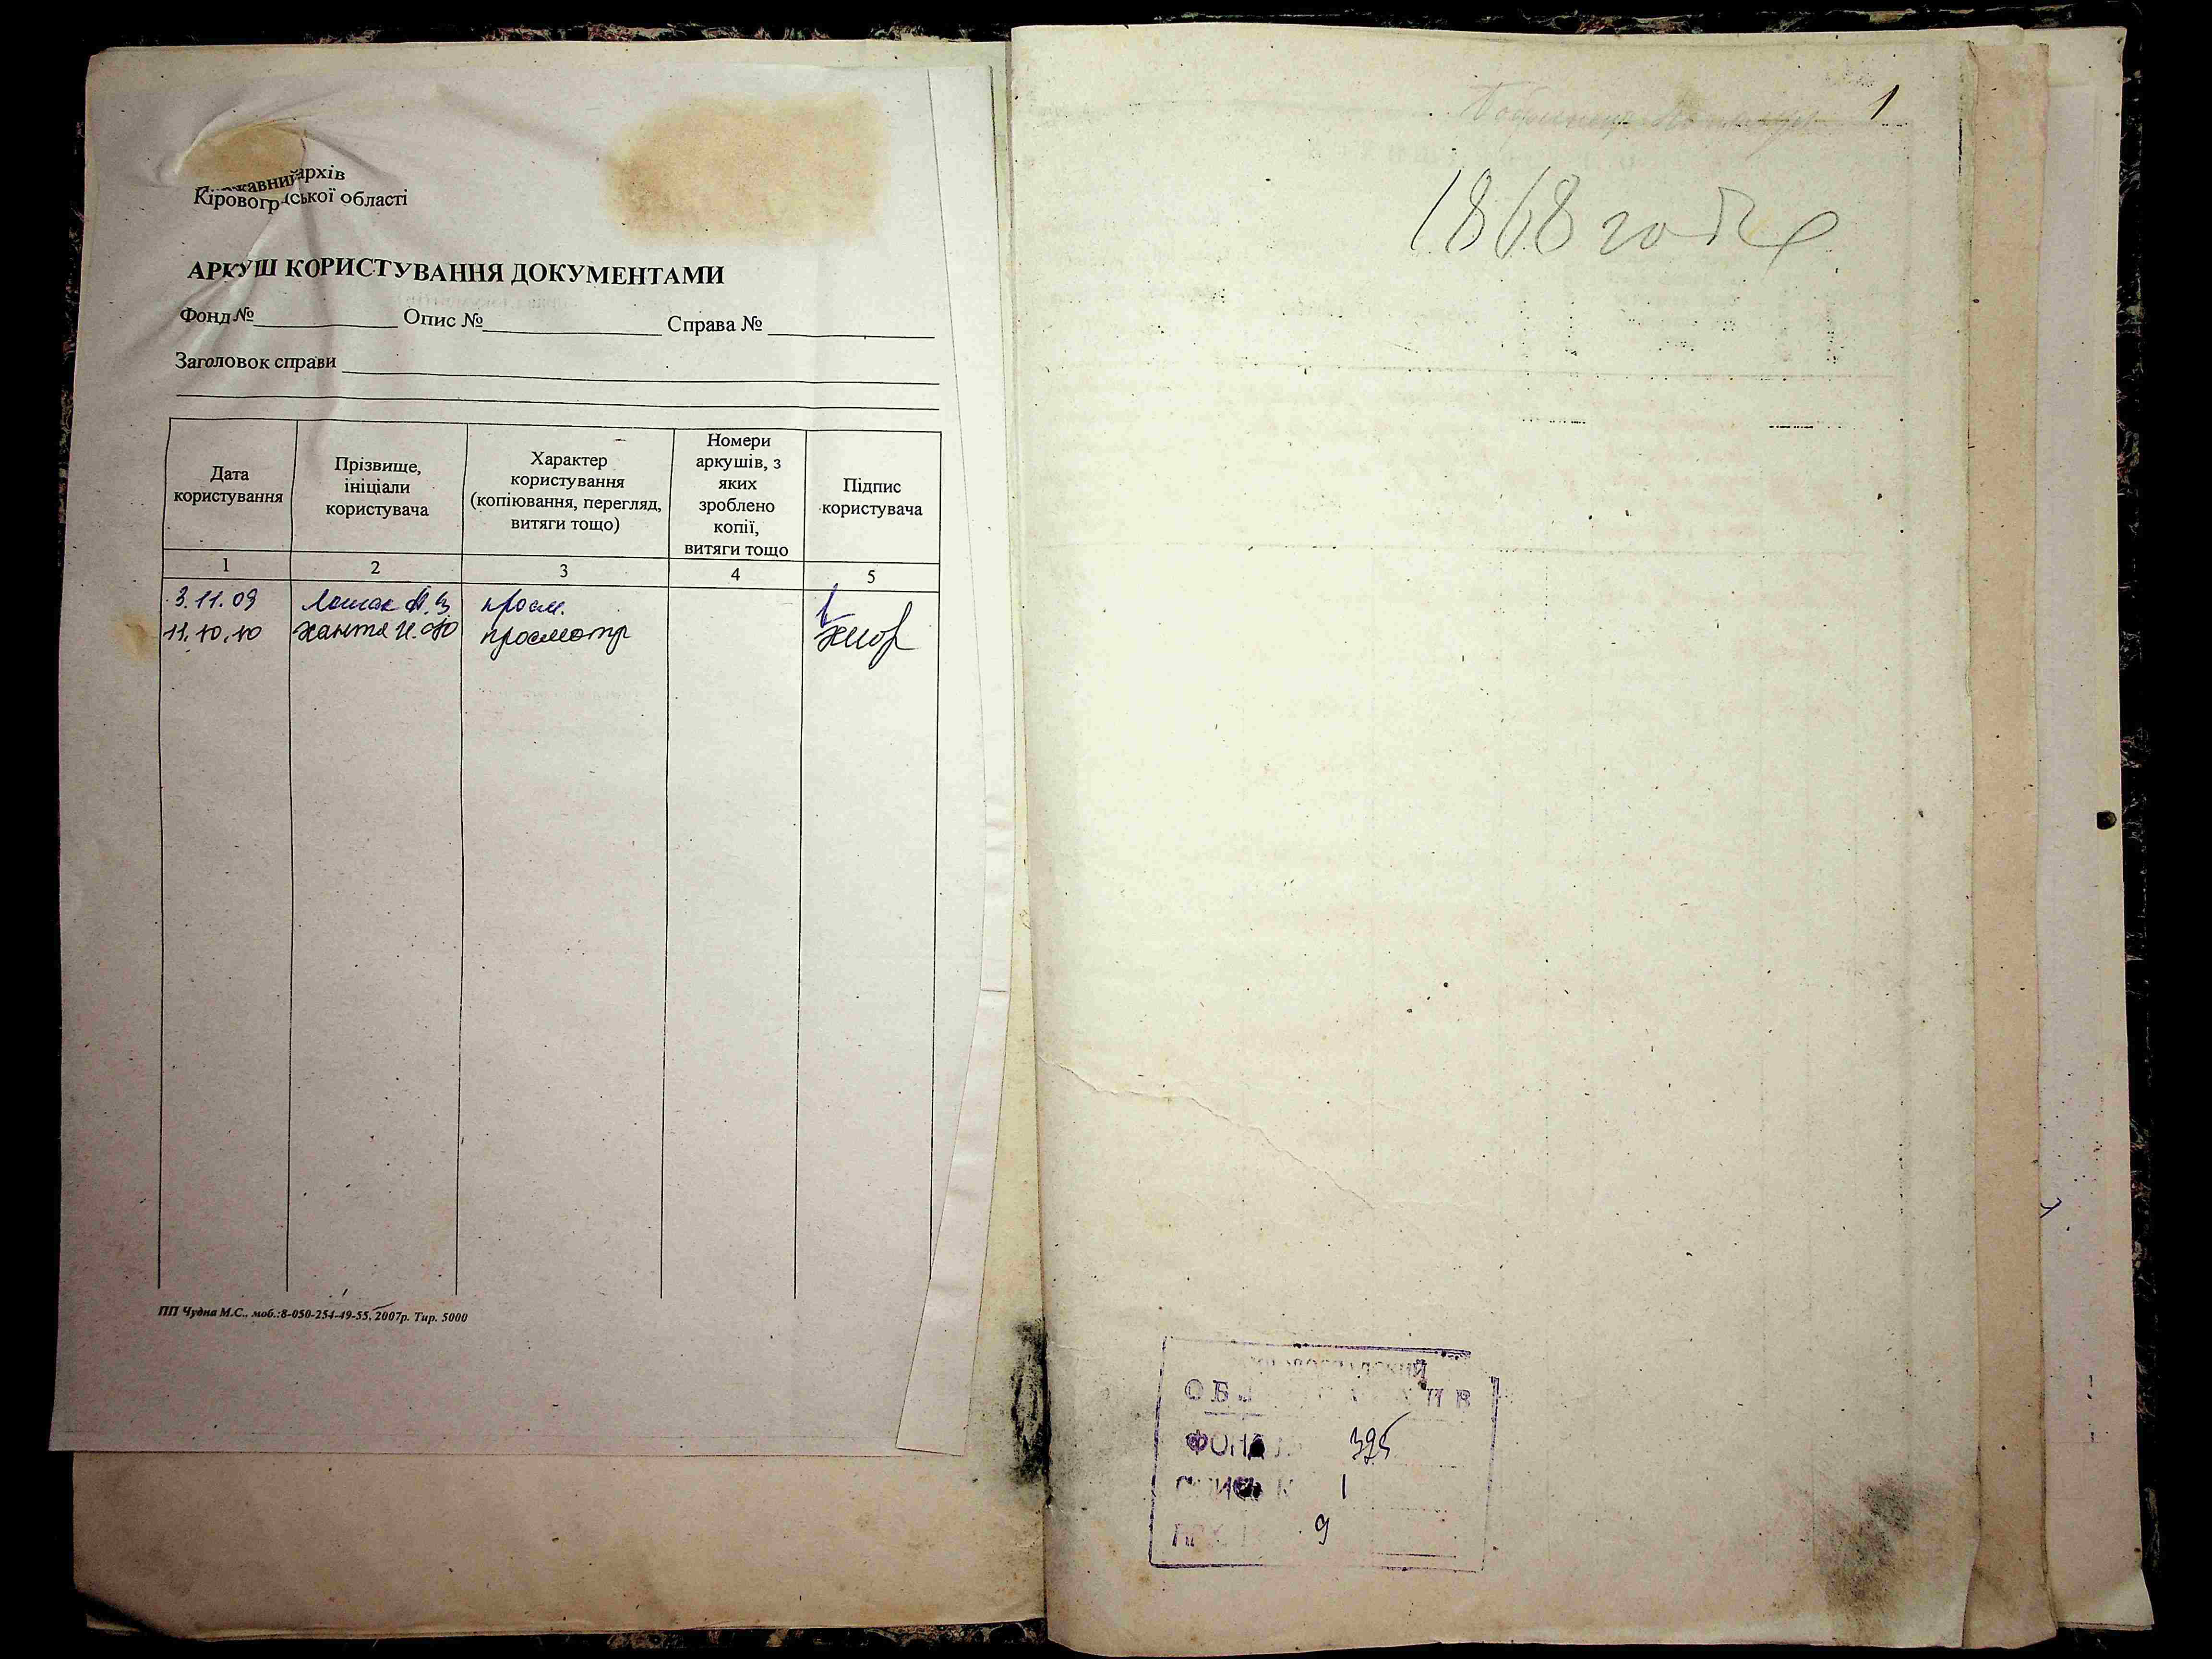 Державний архів
Кіровоградської області
АРКУШ КОРИСТУВАННЯ ДОКУМЕНТАМИ
Фонд № Опис № Справа №
Заголовок справи
Дата користування
Прізвище, ініціали користувача
Характер користування (копіювання, перегляд, витяги тощо)
Номери аркушів, з яких зроблено копії, витяги тощо
Підпис користувача
1 2 3 4 5
3.11.09 просм.
11.10.10 просмотр
ПП Чудна М.С., моб.:8-050-254-49-55, 2007р. Тир. 5000
1
1868 года
ФОНД 325
1
9